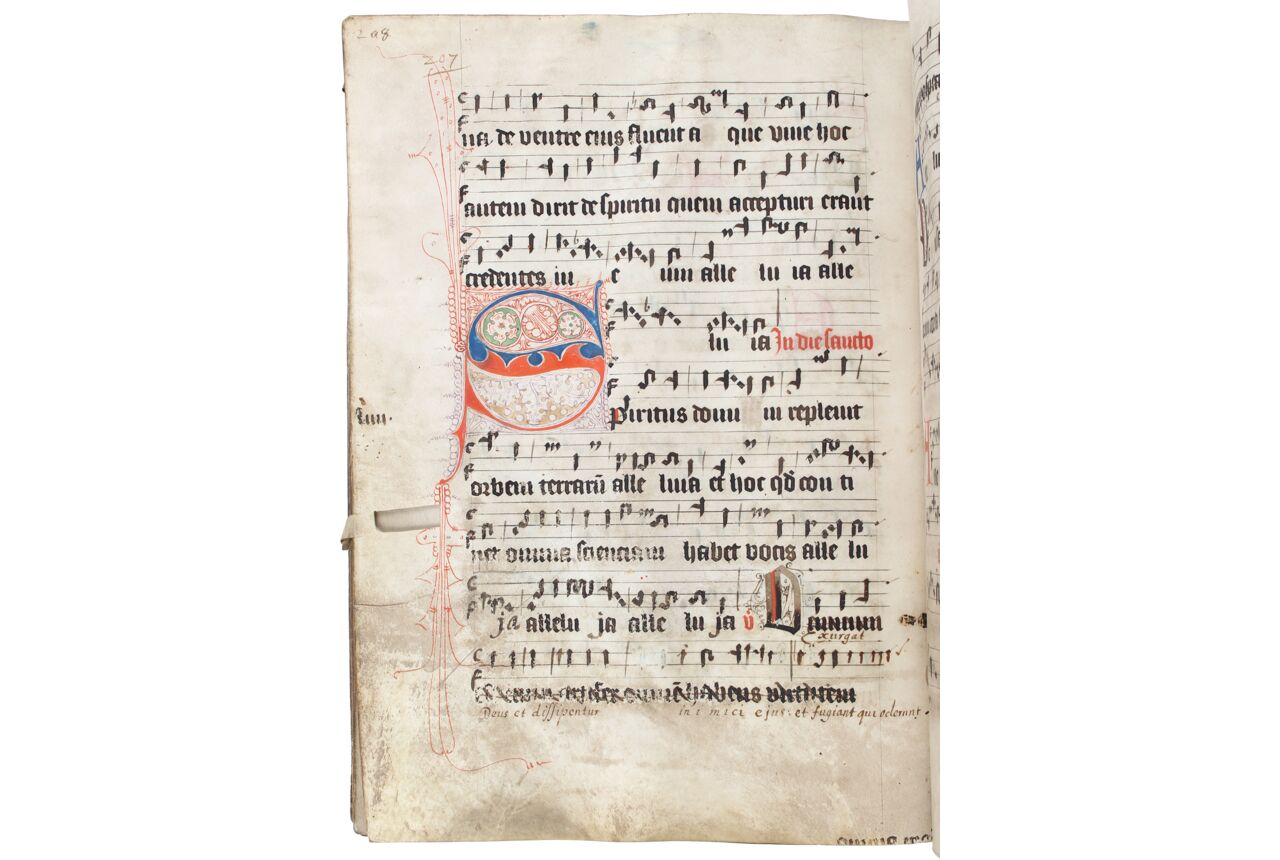 208
207
na de ventre eius fluent a que vive hoc
autem dixit de spiritu quem accepturi erant
credentes in e um alle lu ia alle
lu ia In die sancto
Spiritus domi ni replevit
orbem terrarū alle luia et hoc qd con ti
net omnia scienciam habet vocis alle lu
ja allelu ja alle lu ja v
Exurgat
omnē habens virtutem
Deus et dissipentur in i m i c i ejus et fugiant qui oderunt.